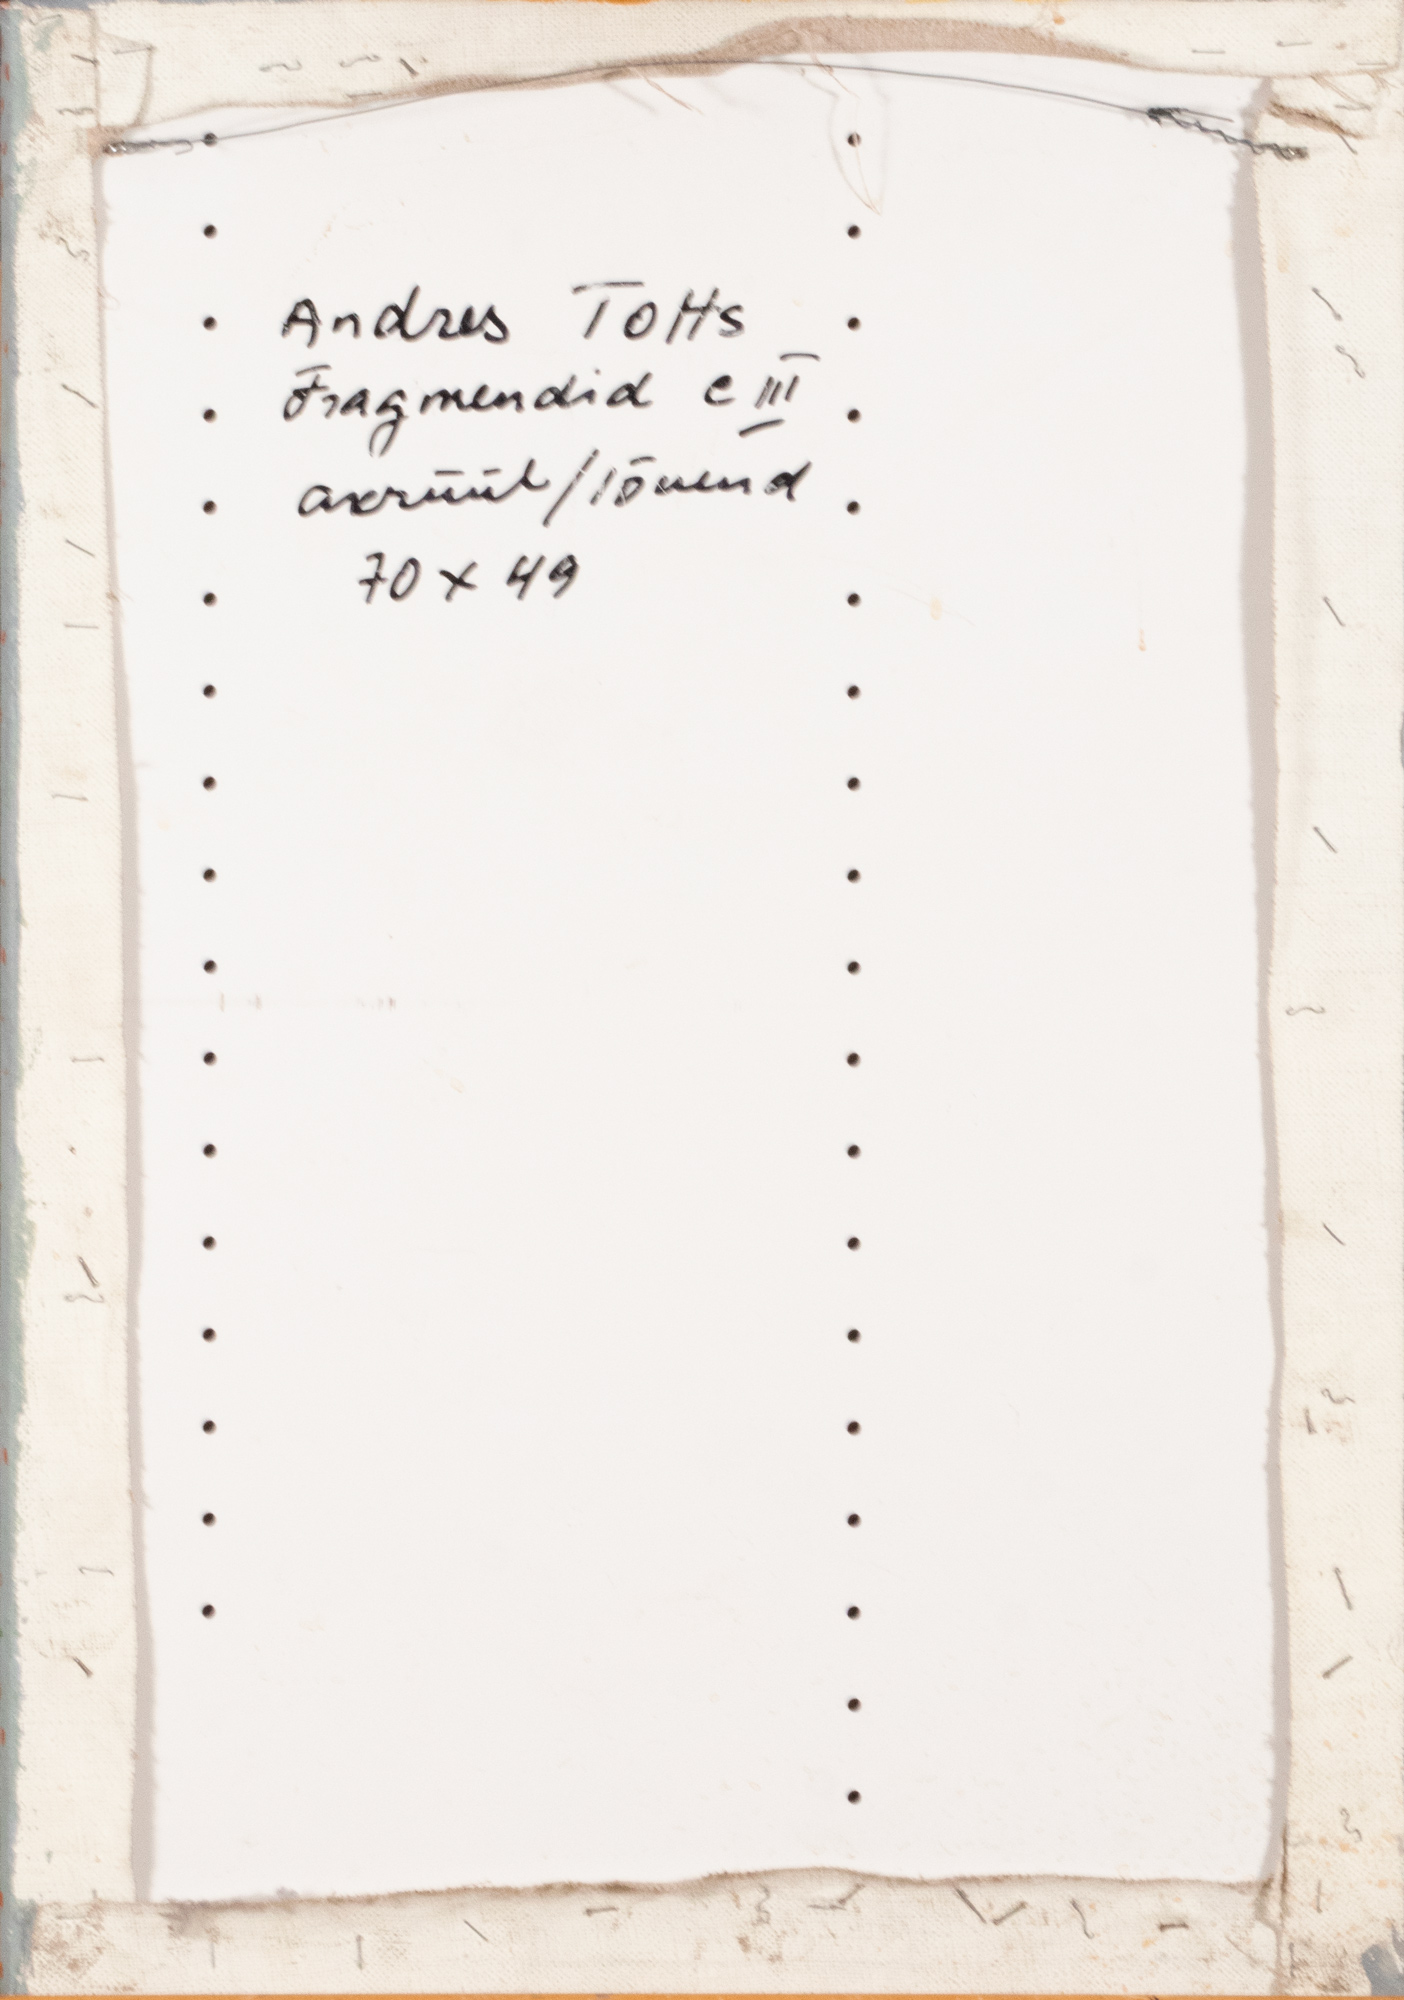 Andres Tolts
Fragmendid e III
akrüül/lõuend
70 x 49